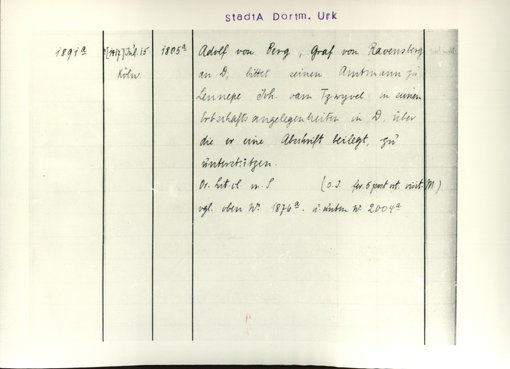 StadtA Dortm. Urk
1891a [1417] Jul. 15 1805a Adolf von Berg, Graf von Ravensberg
Köln an D, bittet seinen Amtmann zu
Lennepe Joh. vam Tzwyvel in seinen
Erbschaftsangelegenheiten in D. über
die er eine Abschrift beilegt, zu
unterstützen.
Or. lit cl. m. S (o. J. fer. 5 post vit. M.)
vgl. oben No. 1876a. u. unten No. 2004a